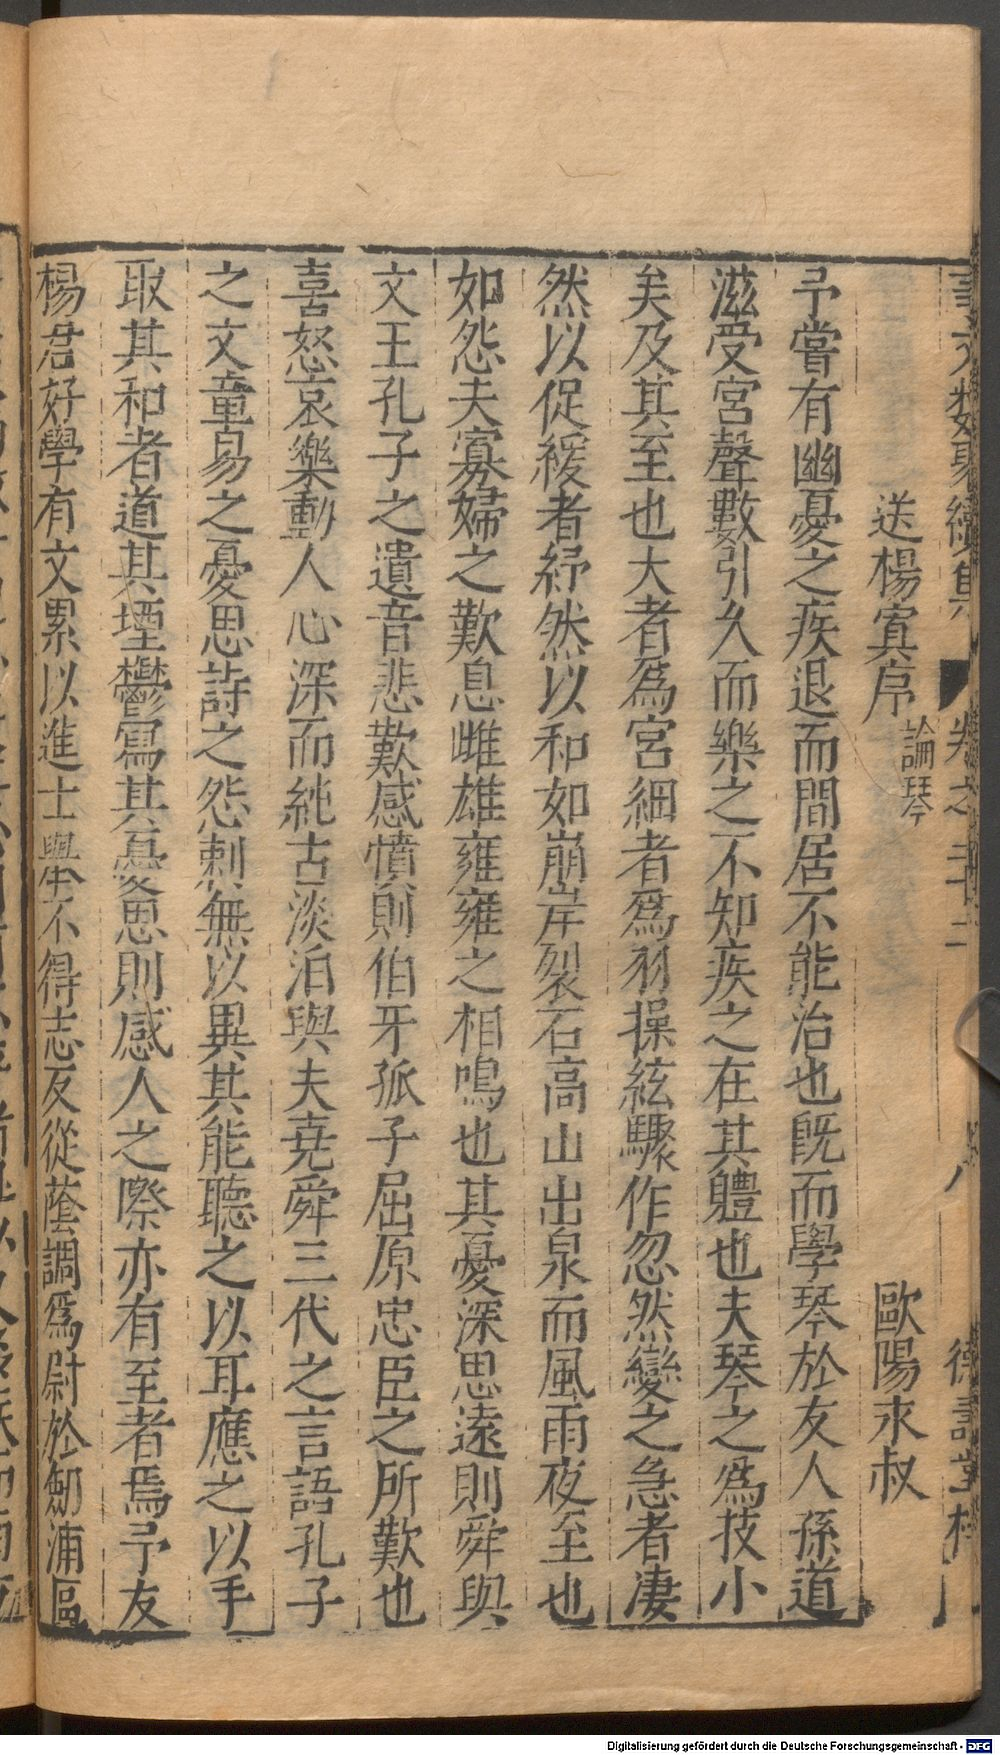 事文類聚續集 卷之二十二 八 德壽堂梓
送楊寘序 論琴 歐陽永叔
予嘗有幽憂之疾退而間居不能治也旣而學琴於友人孫道
滋受宮聲數引久而樂之不知疾之在其體也夫琴之爲技小
矣及其至也大者爲宮細者爲羽操絃驟作忽然變之急者凄
然以促緩者紓然以和如崩岸裂石高山出泉而風雨夜至也
如怨夫寡婦之歎息雌雄雍雍之相鳴也其憂深思遠則舜與
文王孔子之遺音悲歎感憤則伯牙孤子屈原忠臣之所歎也
喜怒哀樂動人心深而純古淡泊與夫堯舜三代之言語孔子
之文章易之憂思詩之怨刺無以異其能聽之以耳應之以手
取其和者道其堙鬱寫其憂思則感人之際亦有至者焉予友
楊君好學有文累以進士舉不得志反從蔭調爲尉於劒浦區
Digitalisierung gefördert durch die Deutsche Forschungsgemeinschaft - DFG